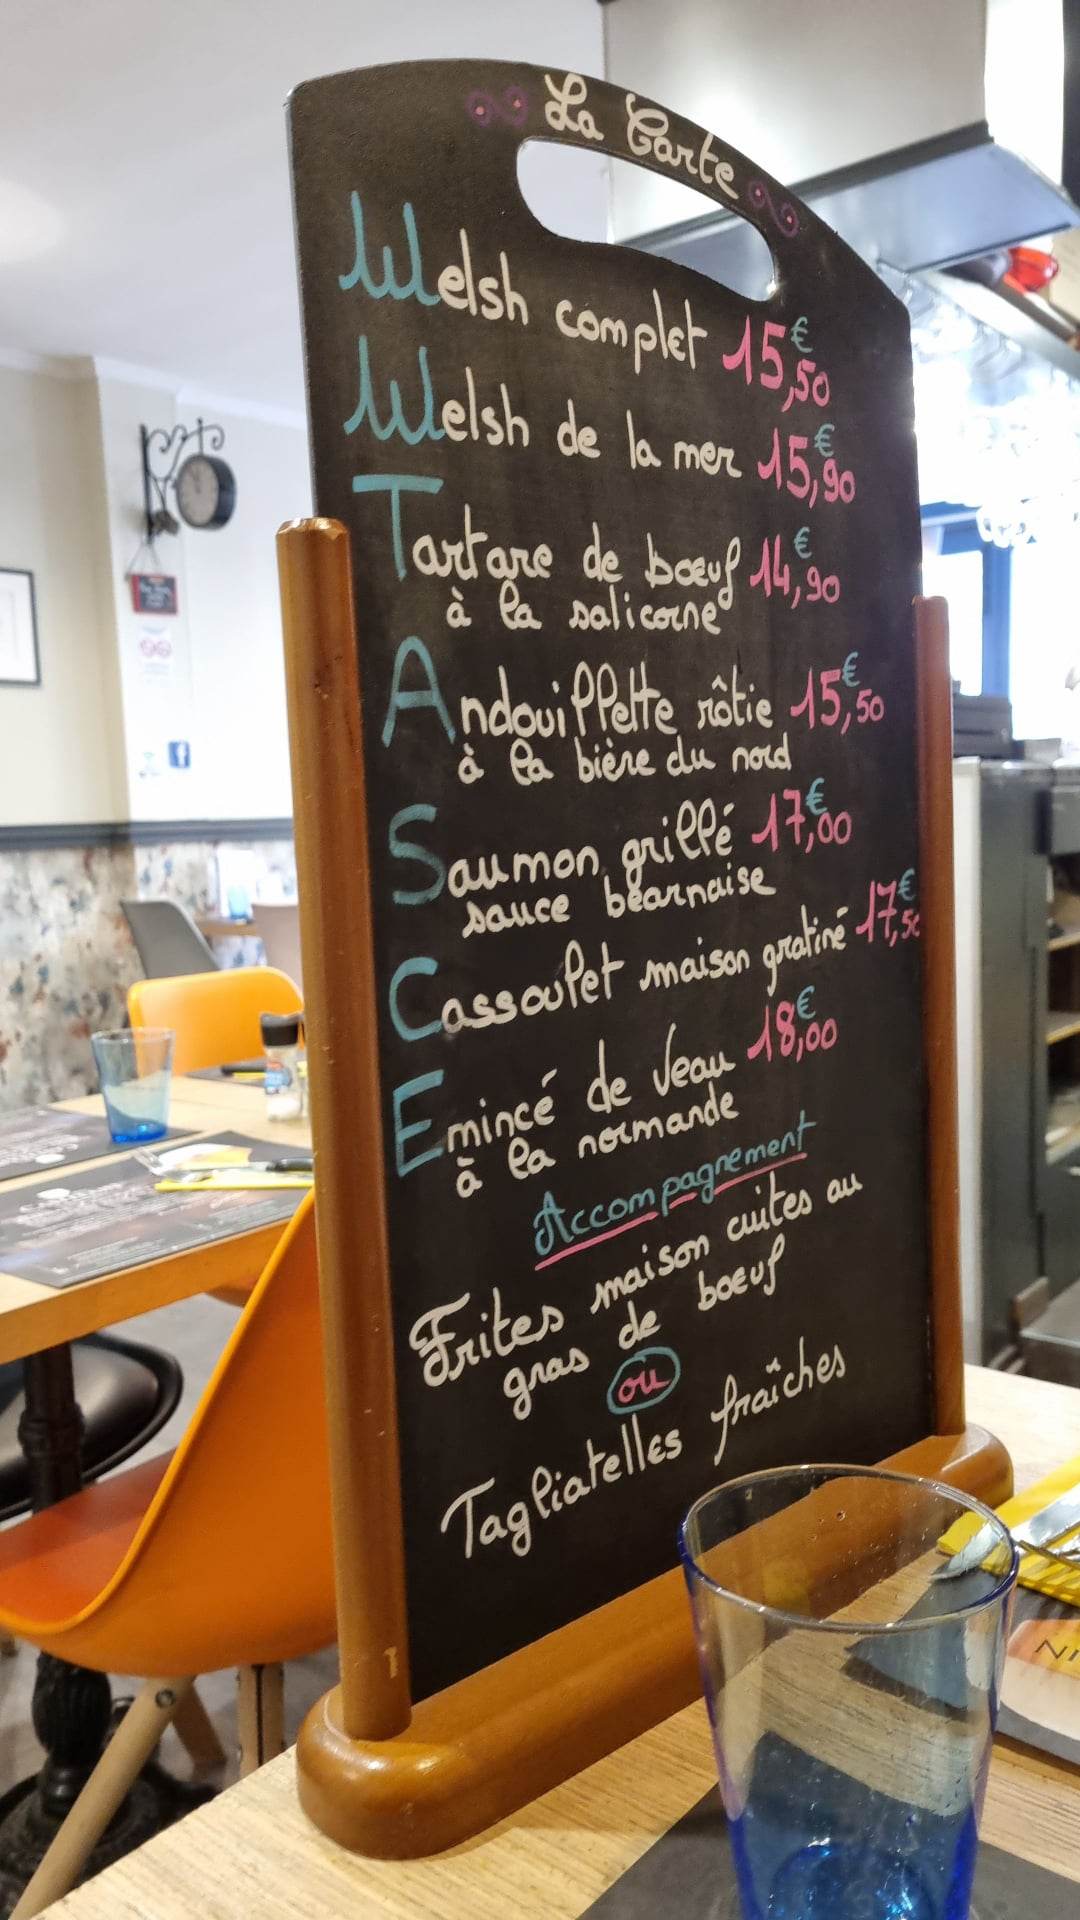 La Carte
Welsh complet 15,50€
Welsh de la mer 15,90€
Tartare de bœuf 14,90€
à la salicorne
Andouillette rôtie 15,50€
à la bière du nord
Saumon grillé 17,00€
sauce béarnaise
Cassoulet maison gratiné 17,50€
Emincé de Veau 18,00€
à la normande
Accompagnement
Frites maison cuites au
gras de boeuf
ou
Tagliatelles fraîches